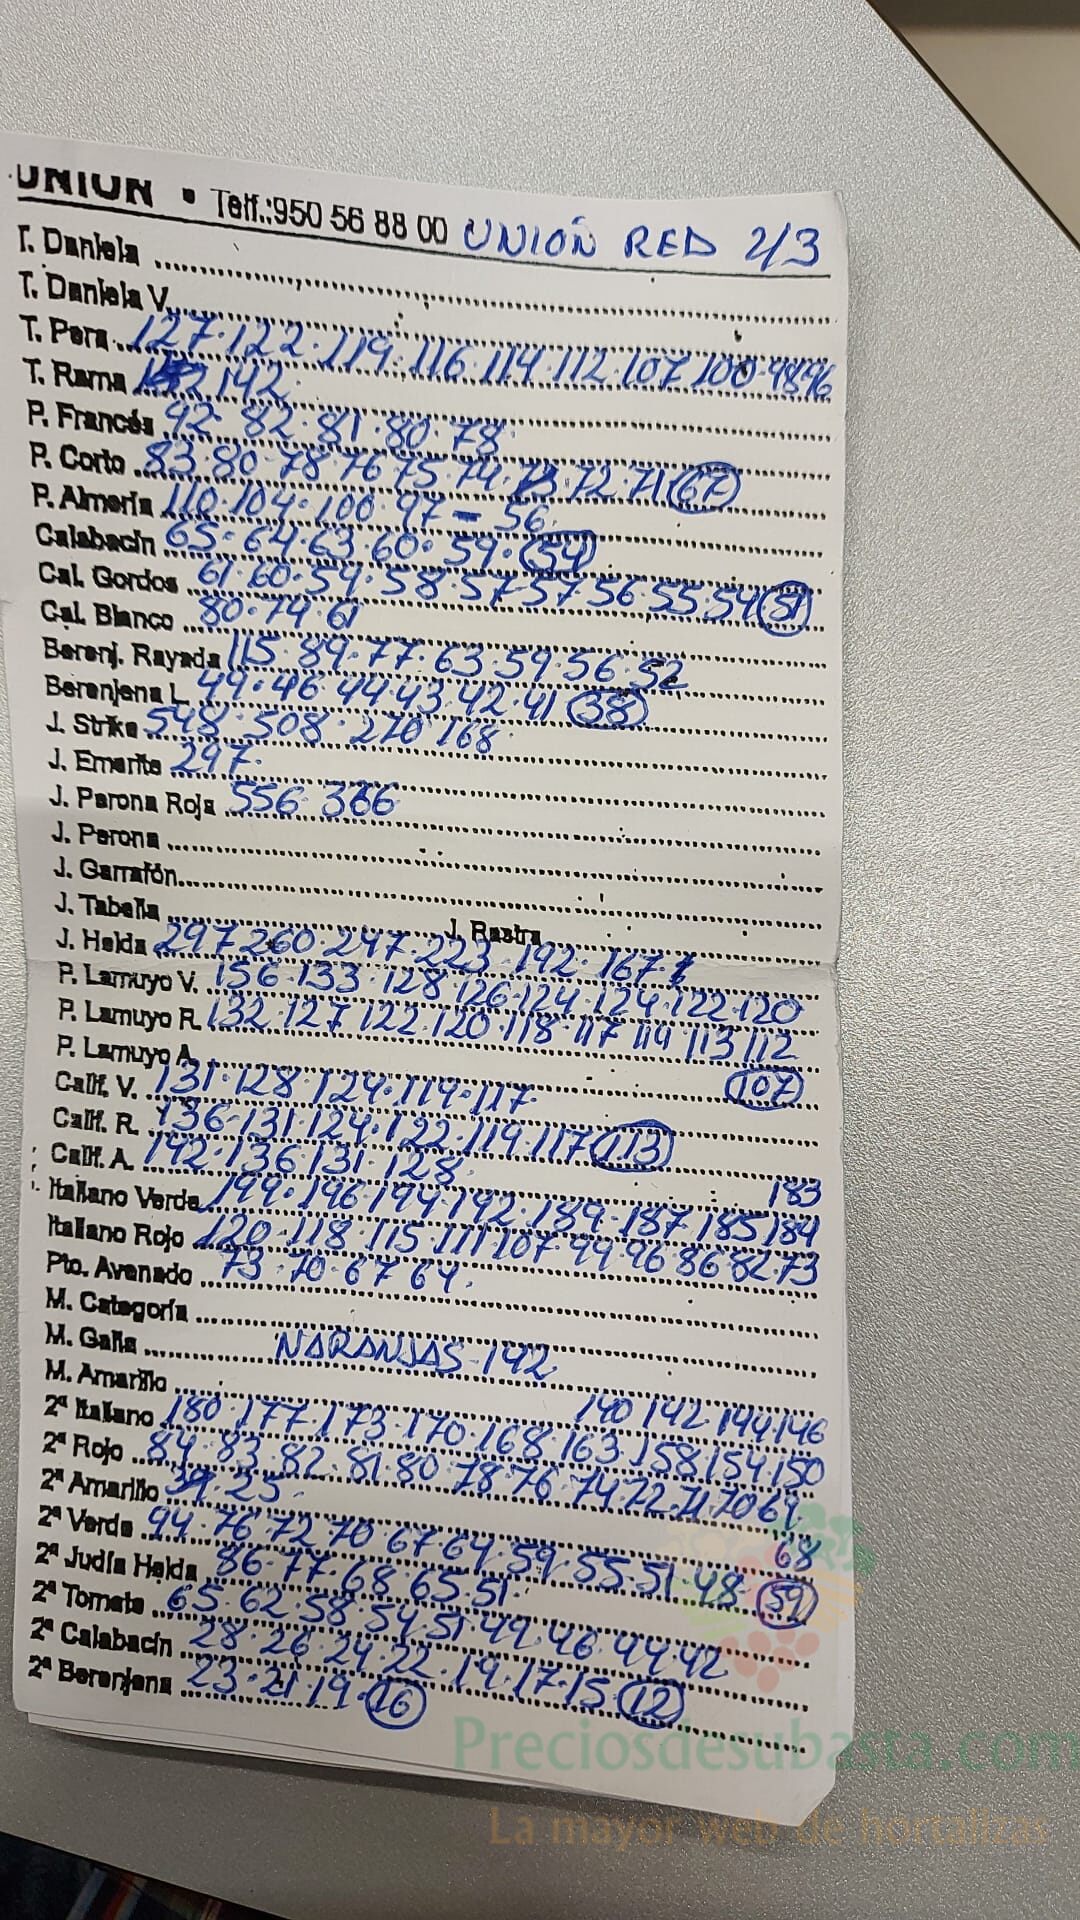 UNION • Telf.:950 56 88 00 UNIÓN RED 2/3
T. Daniela
T. Daniela V.
T. Pera 127·122·119·116·114·112·107·100·98 96
T. Rama 142
P. Francés 92·82·81·80·78
P. Corto 83·80·78·76·75·74·73·72·71 67
P. Almería 110·104·100·97-56
Calabacín 65·64·63·60·59·54
Cal. Gordos 61·60·59·58·57·57·56·55·54 51
Cal. Blanco 80·74·61
Berenj. Rayada 115·89·77·63·59·56·52
Berenjena L. 49·46·44·43·42·41 38
J. Strike 548·508·270·168
J. Emerite 297
J. Perona Roja 556·366
J. Perona
J. Garrafón
J. Tabella J. Rastra
J. Helda 297·260·247·223·192·167
P. Lamuyo V. 156·133·128·126·124·124·122·120
P. Lamuyo R. 132·127·122·120·118·117·114·113·112
P. Lamuyo A. 107
Calif. V. 131·128·124·119·117
Calif. R. 136·131·124·122·119·117 113
Calif. A. 142·136·131·128 183
Italiano Verde 199·196·194·192·189·187·185 184
Italiano Rojo 120·118·115·111·107·99·96·86·82·73
Pto. Avenado 73·70·67·64
M. Categoría
M. Galia NARANJAS-142
M. Amarillo 140 142 144·146
2ª Italiano 180·177·173·170·168·163·158·154·150
2ª Rojo 84·83·82·81·80·78·76·74·72·71·70 69
2ª Amarillo 25 68
2ª Verde 94·76·72·70·67·64·59·55·51·48 59
2ª Judía Helda 86·77·68·65·51
2ª Tomate 65·62·58·54·51·49·46·44·42
2ª Calabacín 28·26·24·22·19·17·15 12
2ª Berenjena 23·21·19·16
Preciosdesubasta.com
La mayor web de hortalizas